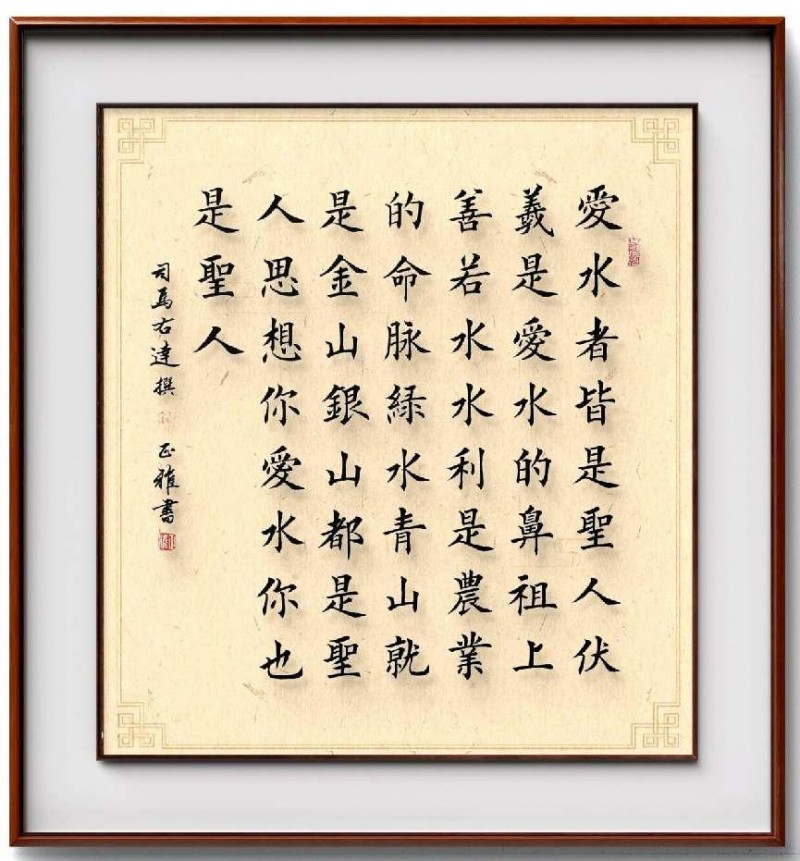 愛水者皆是聖人伏
羲是愛水的鼻祖上
善若水水利是農業
的命脉緑水青山就
是金山銀山都是聖
人思想你愛水你也
是聖人
司馬右達撰 正雅書